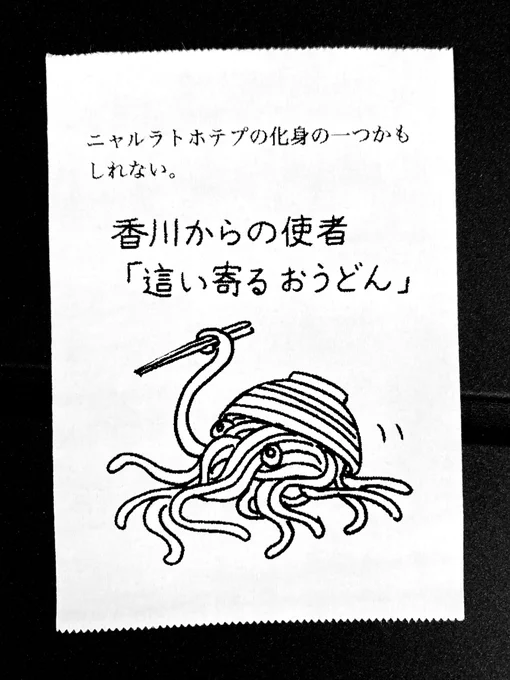 ニャルラトホテプの化身の一つかも
しれない。
香川からの使者
「這い寄るおうどん」